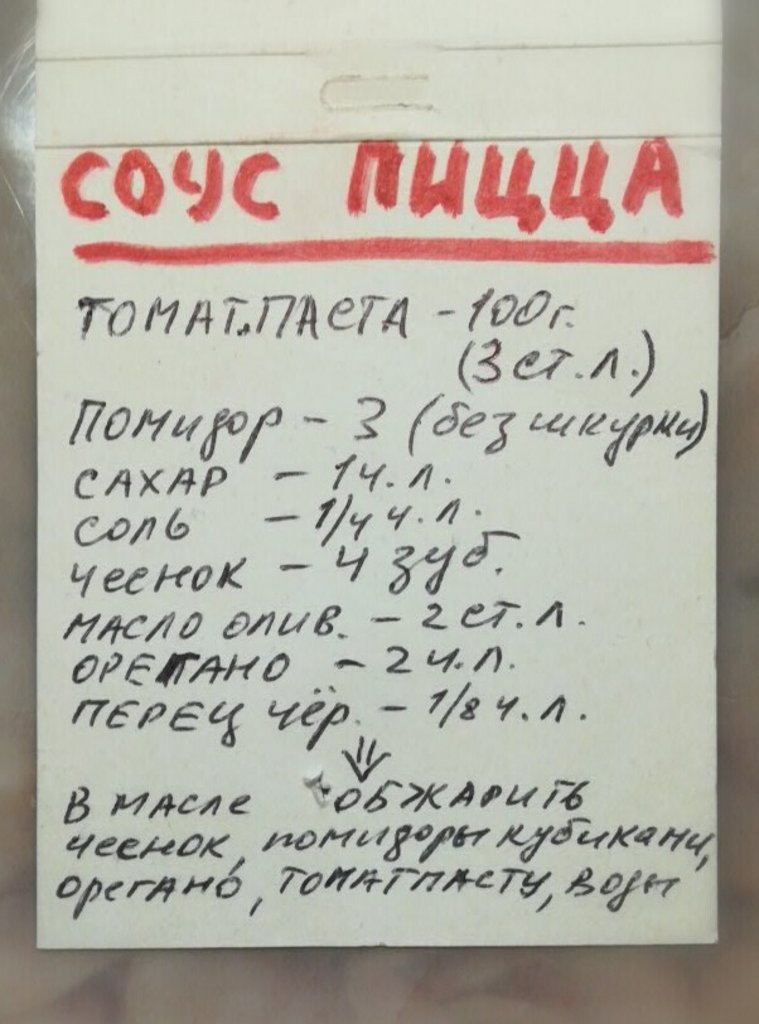 СОУС ПИЦЦА
ТОМАТ.ПАСТА - 100г.
(3 ст. л.)
ПОМИДОР - 3 (без шкурки)
САХАР - 1 ч. л.
СОЛЬ - 1/4 ч. л.
ЧЕСНОК - 4 зуб.
МАСЛО ОЛИВ. - 2 СТ. Л.
ОРЕГАНО - 2 ч. л.
ПЕРЕЦ ЧЁР. - 1/8 ч. л.
⇓
В МАСЛЕ ОБЖАРИТЬ
ЧЕСНОК, помидоры кубиками,
орегано, ТОМАТПАСТУ, воды